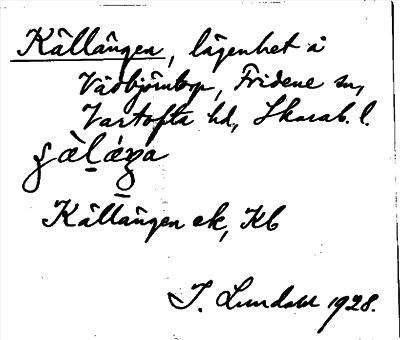 Källängen, lägenhet å
Vådbjörntorp, Fridene sn,
Vartofta hd, Skarab. l.
Källängen ek, Kb
I. Lundahl 1928.